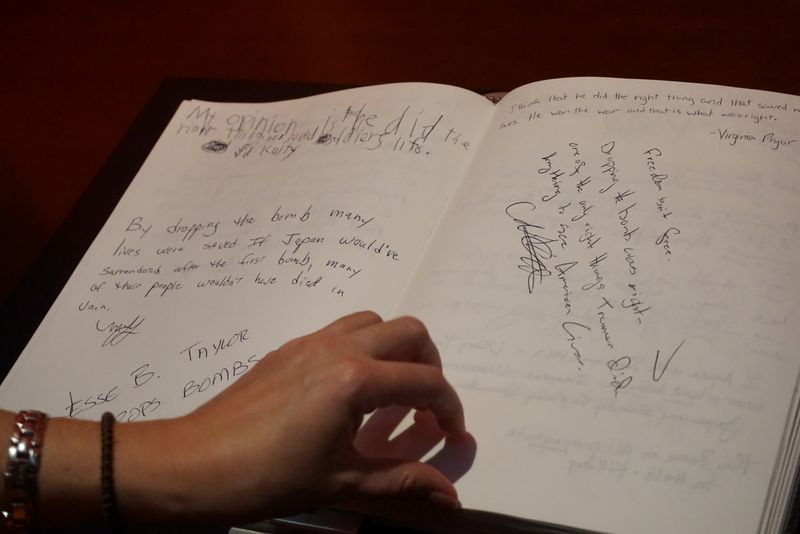 My opinion is the did the
right thing he saved soldiers life.
By Kolty
By dropping the bomb many
lives were saved. If Japan would've
surrendered after the first bomb, many
of their people wouldn't have died in
vain.
ESSE B. TAYLOR
OPS BOMBS
I think that he did the right thing and that saved
lives. He won the war and that is what was right.
-Virginia Pryor
Freedom isn't free.
Dropping the bombs was right-
one of the only right things Truman Did
Anything to save American Lives.